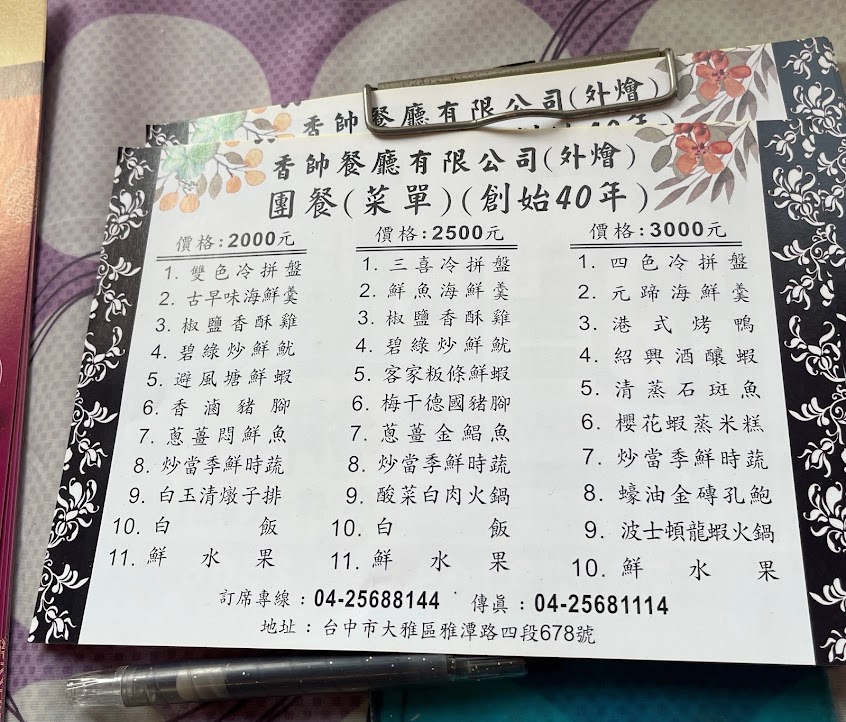 香帥餐廳有限公司(外燴)
香帥餐廳有限公司(外燴)
團餐(菜單)(創始40年)
價格:2000元
1. 雙色冷拼盤
2. 古早味海鮮羹
3. 椒鹽香酥雞
4. 碧綠炒鮮魷
5. 避風塘鮮蝦
6. 香滷豬腳
7. 蔥薑悶鮮魚
8. 炒當季鮮時蔬
9. 白玉清燉子排
10. 白飯
11. 鮮水果
價格:2500元
1. 三喜冷拼盤
2. 鮮魚海鮮羹
3. 椒鹽香酥雞
4. 碧綠炒鮮魷
5. 客家粄條鮮蝦
6. 梅干德國豬腳
7. 蔥薑金鯧魚
8. 炒當季鮮時蔬
9. 酸菜白肉火鍋
10. 白飯
11. 鮮水果
價格:3000元
1. 四色冷拼盤
2. 元蹄海鮮羹
3. 港式烤鴨
4. 紹興酒釀蝦
5. 清蒸石斑魚
6. 櫻花蝦蒸米糕
7. 炒當季鮮時蔬
8. 蠔油金磚孔鮑
9. 波士頓龍蝦火鍋
10. 鮮水果
訂席專線:04-25688144 傳真:04-25681114
地址:台中市大雅區雅潭路四段678號